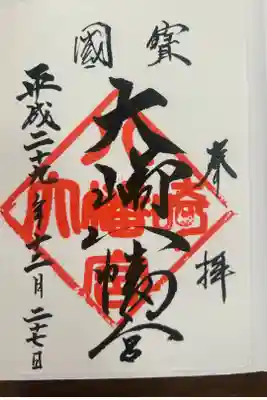 國寶
奉拝
大崎八幡宮
平成二十九年十二月二七日
大崎八幡宮